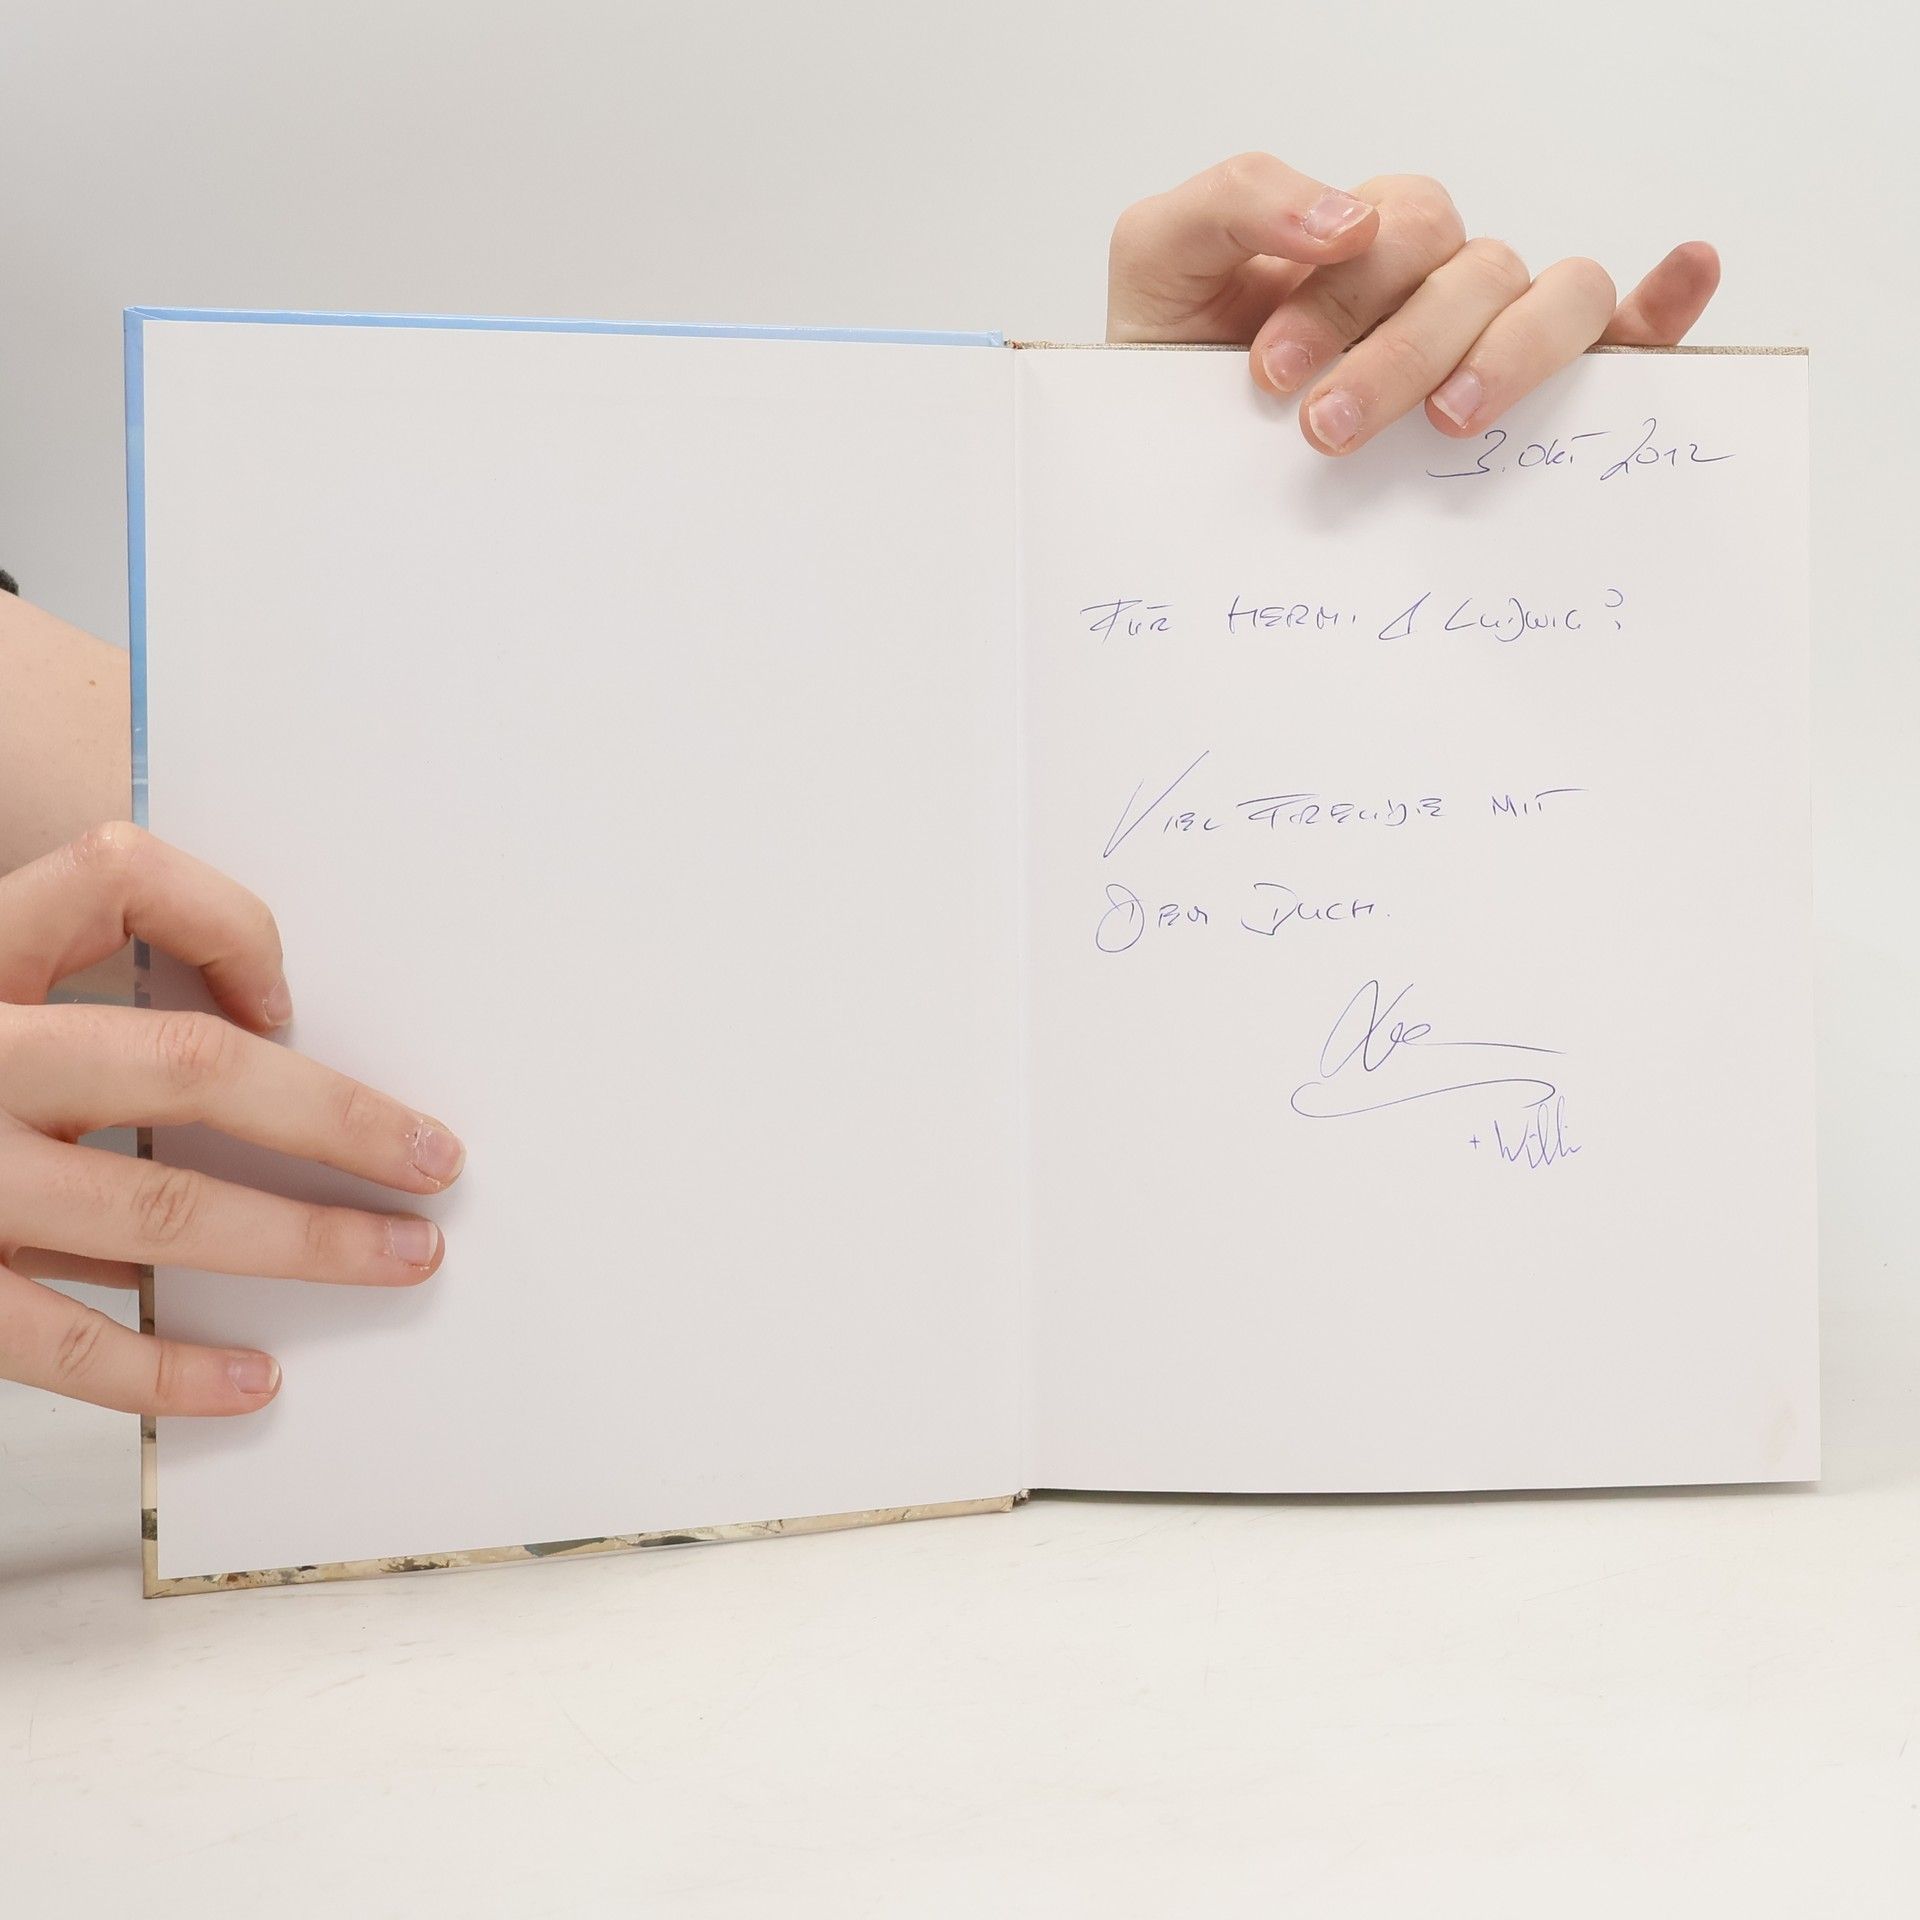 3. Okt 2012
Für Hermi & Ludwig
Viel Freude mit
dem Buch.
+ Willi